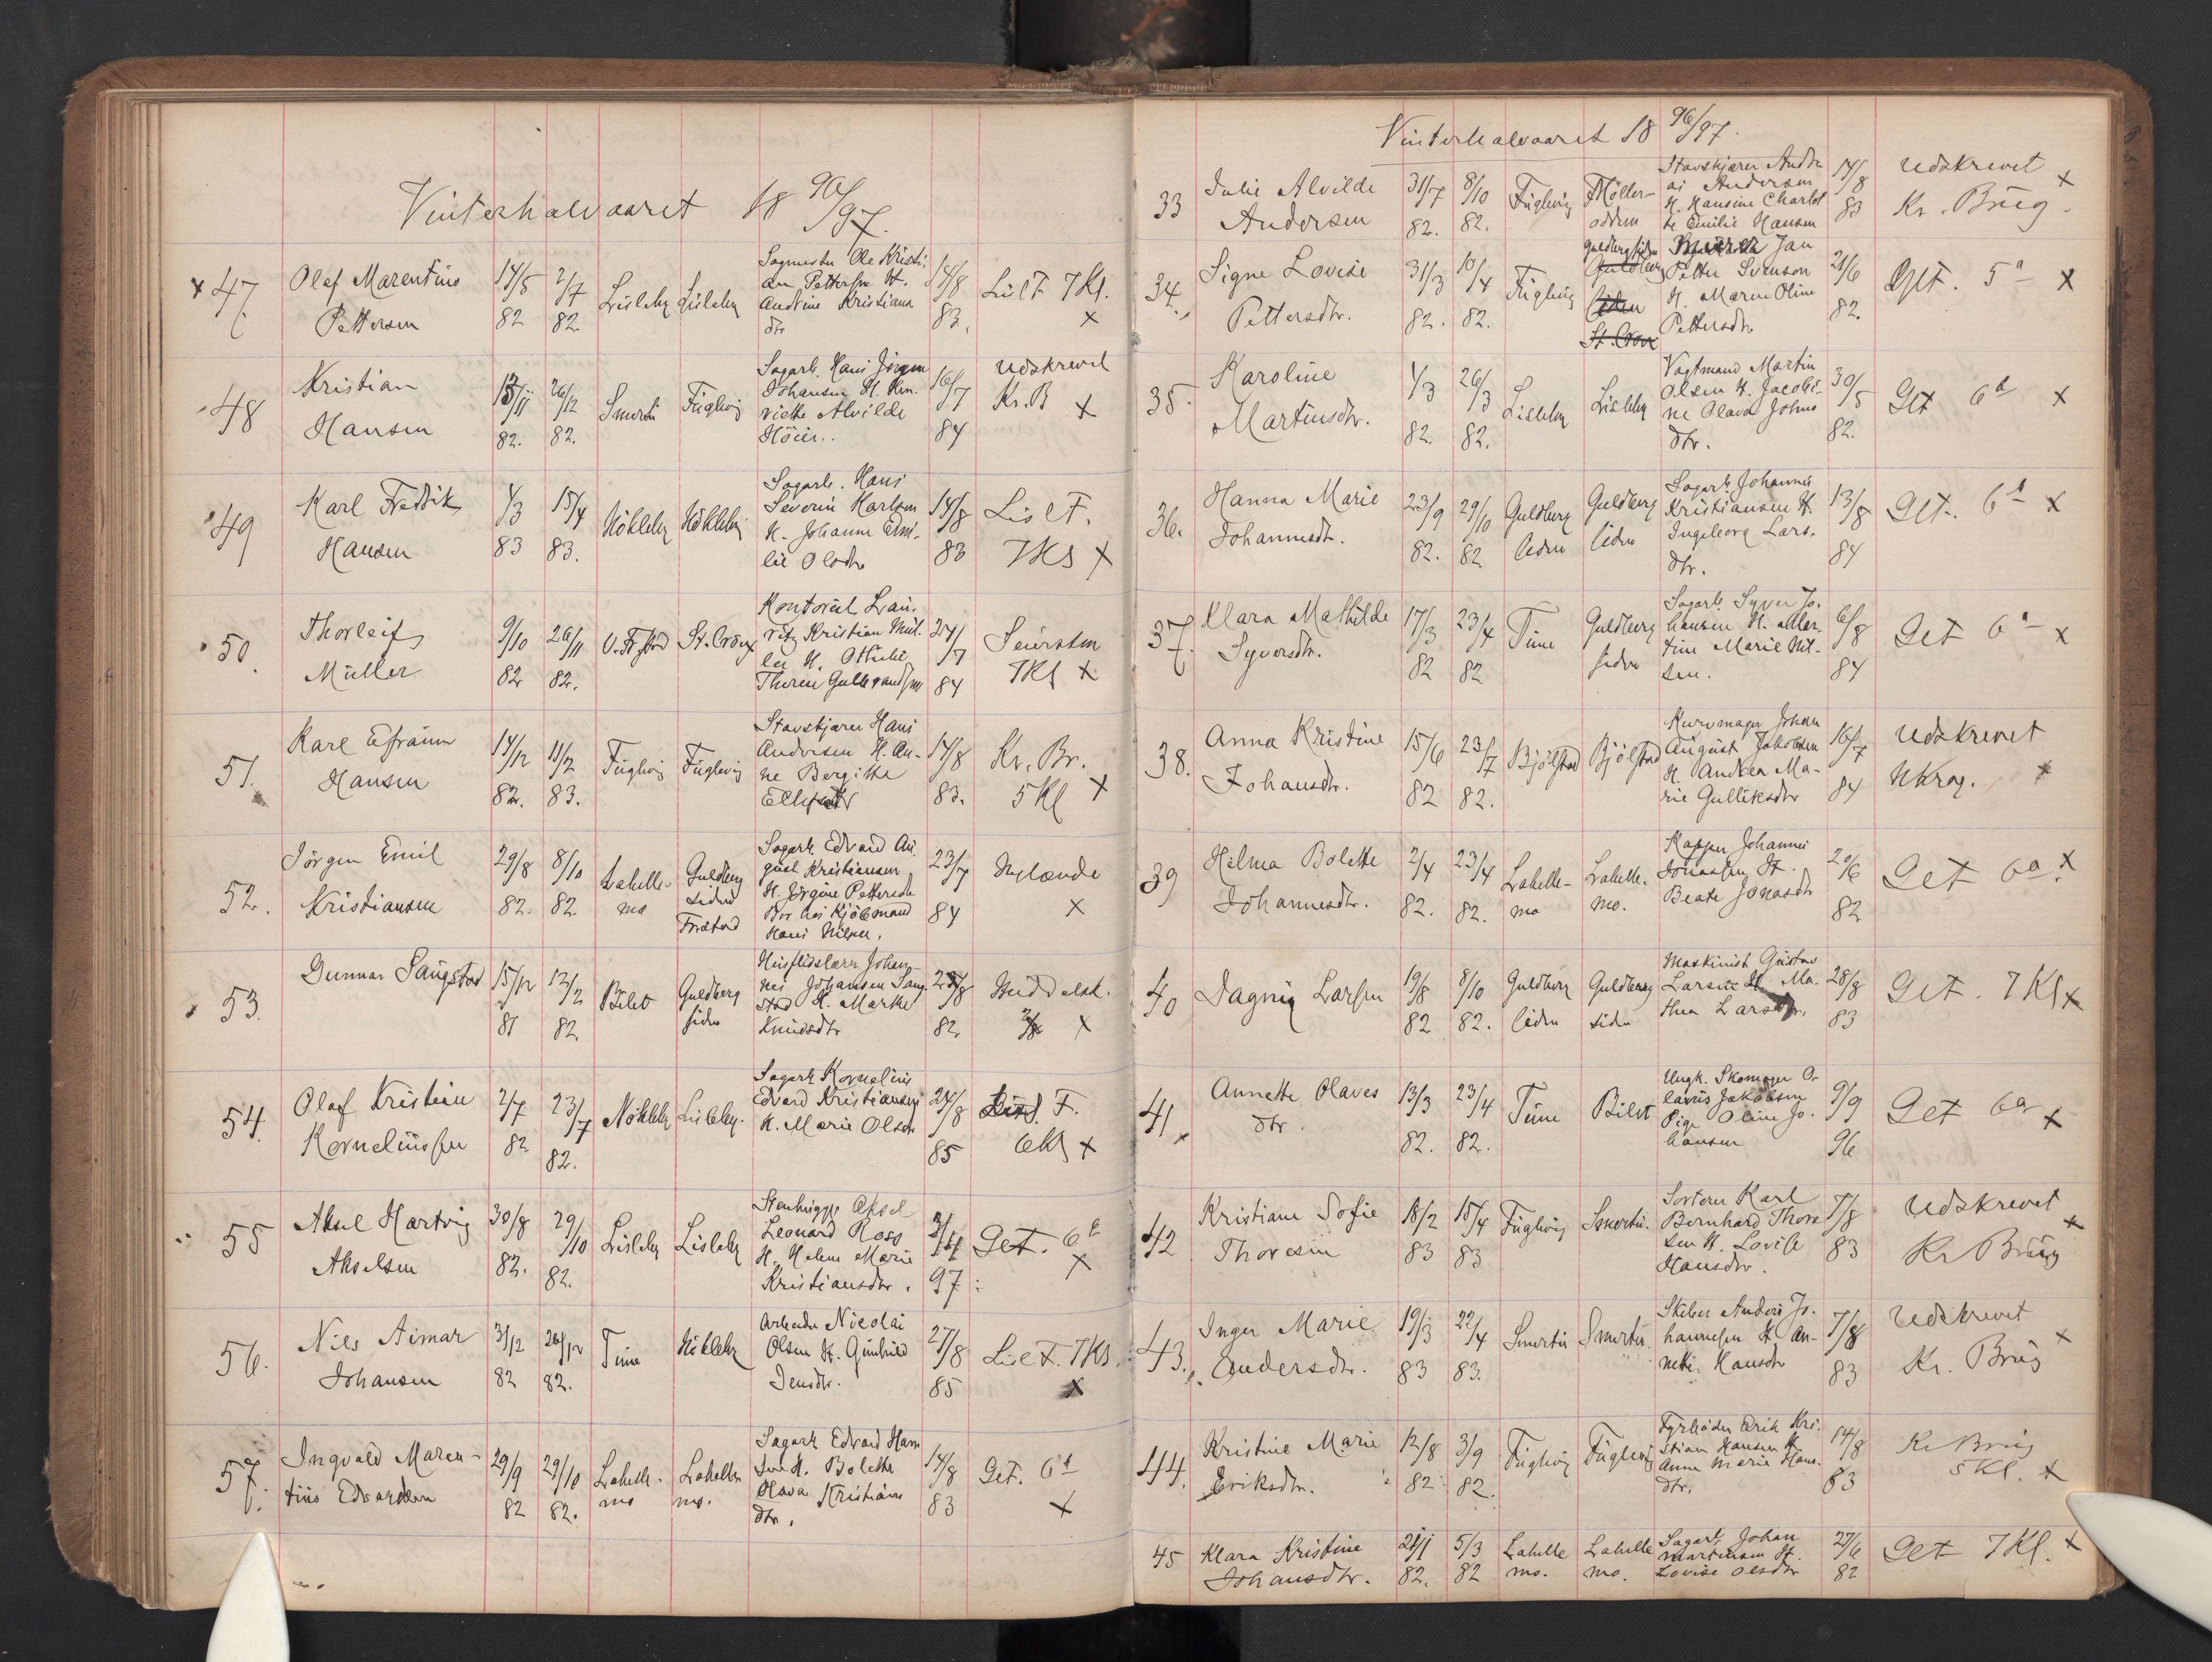 Vinterhalvaaret 18 96/97.
47. Olaf Marentius Pettersen 14/5 82 2/7 82. Lisleby Lisleby Sagmester Ole Kristi-
an Pettersen H.
Andrine Kristiana
dtr 14/8 83. Lisl F. 7 Kl. x
48 Kristian Hansen 82. 26/12 82. Smertu Fuglevig Sagarb. Hans Jörgen
Johansen H. Hen-
riette Alvilde
Höier.. 16/7 84 Udskrevet Kr. B x
49 Karl Fredrik Hansen 1/3 83 15/4 83. Nökleby Nökleby Sagarb. Hans
Severin Karlsen
H. Johanne Emi-
lie Olsdtr 14/8 83 Lisl F. 7 Kl x
50. Thorleif Müller 9/10 82 26/11 82. St. Croix Kontorist Lau-
ritz Kristian Mül-
ler H. Othilie
Thorea 84 7 Kl x
51. Karl Efraim Hansen 14/12 82. 11/2 83. Fuglevig Fuglevig Stavskjærer Hans
Andersen H. An-
ne Bergitta 14/8 83. Kr. Br. 5 Kl x
52. Jörgen Emil Kristiansen 29/8 82. 8/10 82. Lahelle-
mo Guldberg
siden
Fredstad Sagarb Edvard Au-
gust Kristiansen
H. Jörgine Pettersdtr
Bor hos Kjöbmand
Hans Nilsen. 23/7 84 Nylænde x
53. Gunnar Saugstad 15/12 81 12/2 82 Bilet Guldberg
siden Husflidslærer Johan-
nes Johansen Saug-
stad H. Marthe
Knudsdtr 82. Middelsk. x
54. Olaf Kristian Korneliussen 2/7 82 23/7 82. Nökleby Lisleby. Sagarb Kornelius
Edvard Kristiansen
H. Marie Olsdtr 24/8 85 Lisl. F. 6 Kl x
55 Aksel Hartvig Akselsen 30/8 82. 29/10 82. Lisleby Lisleby Stenhugger Aksel
Leonard Ross
H. Helene Marie
Kristiansdtr. 97. Get. 6 b x
56. Nils Aimar Johansen 31/12 82 26/12 82. Tune Nökleby Arbeider Nicolai
Olsen H. Gunhild
Jensdtr. 27/8 85 Lisl F. 7 Kl. x
57. Ingvald Maren-
tius Edvardsen 29/9 82 29/10 82. Lahelle-
mo Lahelle
mo. Sagarb Edvard Han
sen H. Bolette
Olava Kristians
dtr. 14/8 83 Get. 6 b x
Vinterhalvaaret 18 96/97.
33 Julie Alvilde Andersen 31/7 82. 8/10 82. Fuglevig Möller-
odden Stavskjærer Andre
as Andersen
H. Hansine Charlot
te Emilie Hansen 14/8 83 Udskrevet Kr. Brug. x
34. Signe Lovise Pettersdtr. 31/3 82. 10/4 82. Fuglevig Guldberg siden St. Croix Jan
Petter Svenson
H. Maren Oline
Pettersdtr 21/6 82. Get. 5 a x
35. Karoline Martinsdtr. 1/3 82. 26/3 82. Lisleby Lisleby Vagtmand Martin
Olsen H. Jacobi-
ne Olava Johns
dtr. 30/5 82. Get 6 b x
36. Hanna Marie Johannesdtr. 23/9 82. 29/10 82 Guldberg
siden Guldberg
siden Sagarb Johannes
Kristiansen H.
Ingeborg Lars-
dtr. 13/8 84 Get. 6 b x
37. Klara Mathilde Syversdtr. 17/3 82 23/4 82 Tune Guldberg
siden Sagarb. Syver Jo-
hansen H. Mar-
tine Marie Nil-
sen. 6/8 84 Get 6 a x
38. Anna Kristine Johansdtr. 15/6 82 23/7 82. Bjölstad Bjölstad Kurvmager Johan
August Jakobsen
H. Andrea Ma-
rie Gulliksdtr 16/7 84 Udskrevet Nkrag. x
39 Helma Bolette Johannesdtr. 2/4 82. 23/4 82. Lahelle-
mo Lahelle-
mo. Kapper Johannes
Jonassen H.
Beate Jonasdtr 20/6 82 Get 6 a x
40 Dagny Larsen 19/8 82 8/10 82. Guldberg
siden Guldberg
siden Maskinist Gustav
Larsen H. Ma-
thea Larsdtr. 28/8 83 Get. 7 Kl x
41. Annette Olaves
dtr. 13/3 82. 23/4 82. Tune Bilet Ungk. Skomager O-
lavus Jakobsen
Pige Oline Jo-
hansen 9/9 96 Get 6 a x
42 Kristiane Sofie Thoresen 18/2 83 15/4 83 Fuglevig Smertu. Sorterer Karl
Bernhard Thore
sen H. Lovise
Hansdtr. 7/8 83 Udskrevet Kr Brug x
43. Inger Marie Andersdtr. 19/3 83 22/4 83. Smertu Smertu. Skiber Anders Jo-
hannesen H An-
nette Hansdtr 7/8 83 Udskrevet Kr. Brug x
44. Kristine Marie Eriksdtr. 12/8 82 3/9 82. Fuglevig Fuglevig Fyrböder Erik Kri-
stian Hansen H
Anne Marie Hans-
dtr. 14/8 83 Kr Brug 5 Kl. x
45 Klara Kristine Johansdtr. 21/1 82. 5/3 82 Lahelle
mo. Lahelle
mo. Sagarb Johan
Martinsen H.
Lovise Olsdtr 27/6 82 Get 7 Kl. x